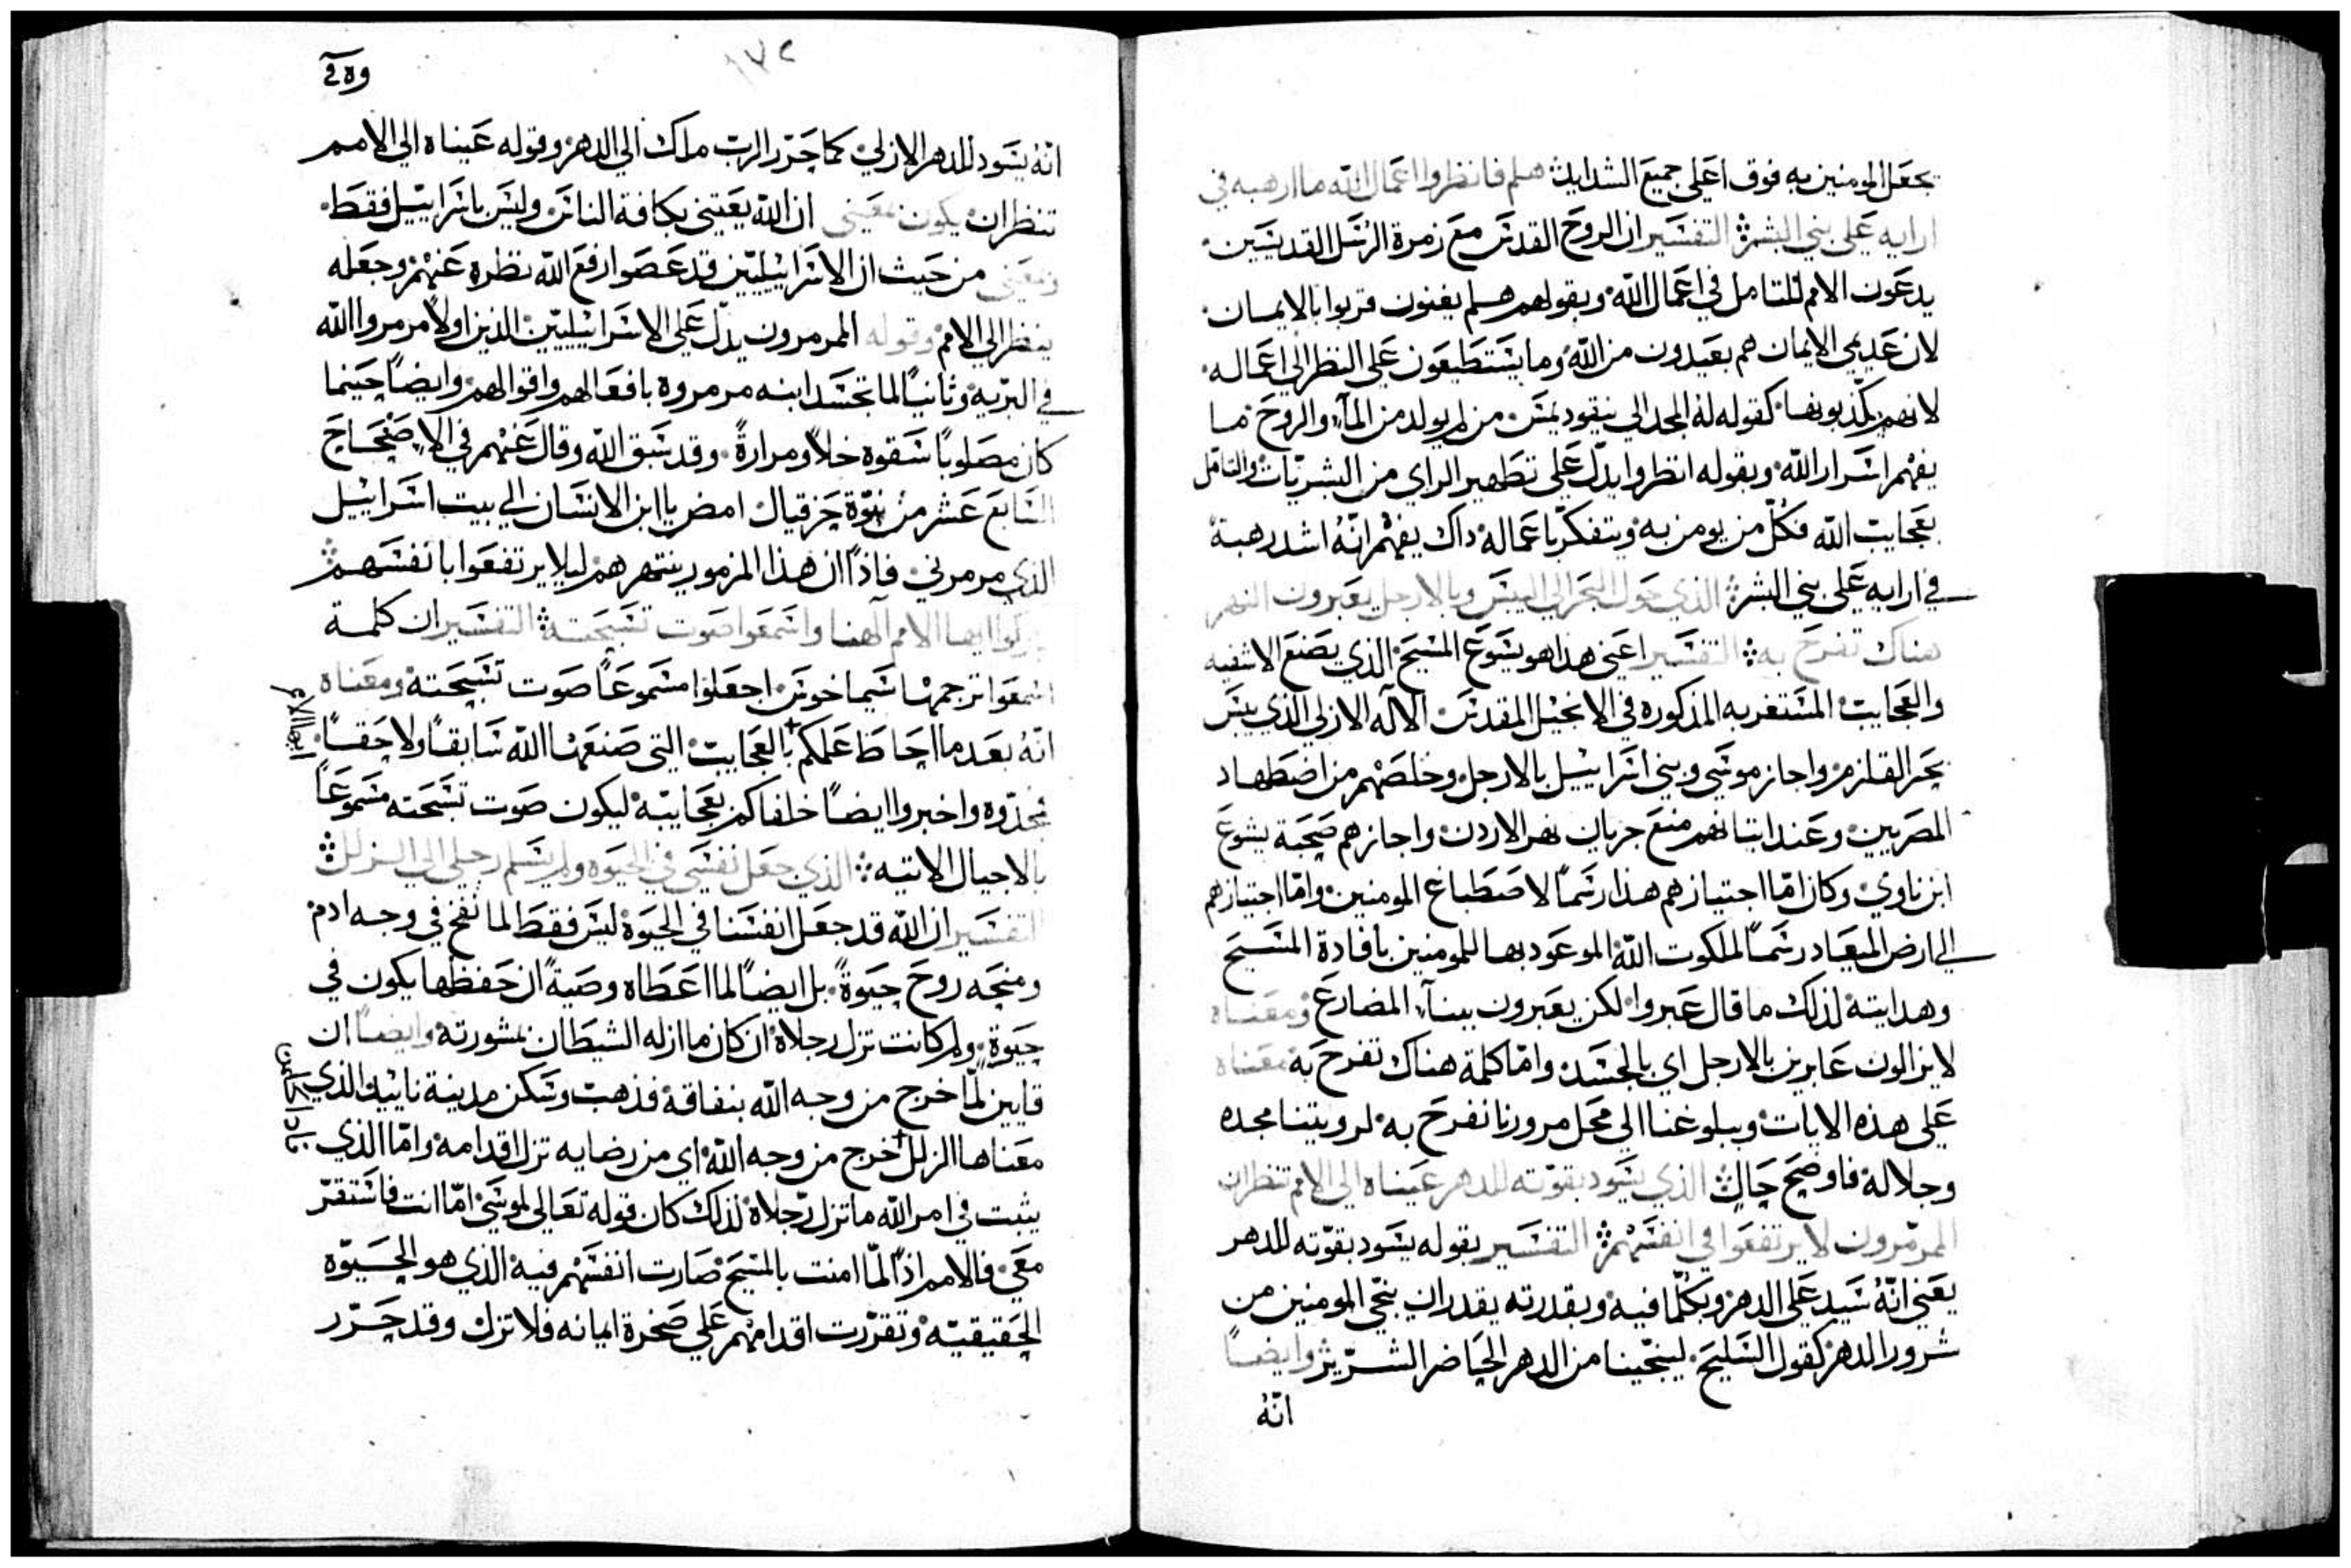 يجعل المومنين به فوق اعلى جميع الشدايد هلم فانظروا اعمال الله ما ارهبه في
ارايه على بني البشر التفسير ان الروح القدس مع زمرة الرسل القديسين
يدعون الامم للتامل في اعمال الله وبقولهم هلم يعنون قربوا بالايمان
لان عديمي الايمان هم بعيدون من الله وما يستطيعون على النظر الى اعماله
لانهم يكذبونها كقوله له المجد الى نيقوديمس من لم يولد من المآء والروح ما
يفهم اسرار الله وبقوله انظروا يدل على تطهير الراي من البشريات والتامل
بعجايب الله فكل من يومن به ويتفكر باعماله داك يفهم انه اشد رهبة
في ارايه على بني البشر الذي حول البحر الى اليبس وبالارجل يعبرون النهر
هناك تفرح به التفسير اعني هدا هو يسوع المسيح الذي يصنع الاشفيه
والعجايب المستغربه المذكوره في الانجيل المقدس الاله الازلي الذي يبس
بحر القلزم واجاز موسى وبني اسراييل بالارجل وخلصهم من اضطهاد
المصريين وعند اتيانهم منع جريان نهر الاردن واجازهم صحبة يشوع
ابن ناوي وكان اما اجتيازهم هذا رسما لاصطباغ المومنين واما اجتيازهم
الى ارض الميعاد رسما لملكوت الله الموعود بها للمومنين بافادة المسيح
وهدايته لذلك ما قال عبروا لكن يعبرون ببنآء المضارع ومعناه
لا يزالون عابرين بالارجل اي بالجسد واما كلمة هناك تفرح به معناه
على هذه الايات وببلوغنا الى محل مرورنا نفرح به لرويتنا مجده
وجلاله فاوضح حال الذي يسود بقوته للدهر عيناه الى الامم تنظران
المرمرون لا يرتفعوا في انفسهم التفسير بقوله يسود بقوته للدهر
يعني انه سيد على الدهر وبكلما فيه وبقدرته يقدر ان ينجي المومنين من
شرور الدهر كقول السليح لينجينا من الدهر الحاضر الشرير وايضا
انه
١٧٢
انه يسود للدهر الازلي كما حرر الرب ملك الى الدهر وقوله عيناه الى الامم
تنظران يكون بمعني ان الله يعتني بكافة الناس وليس باسراييل فقط
ومعني من حيث ان الاسراييليين قد عصوا رفع الله نظره عنهم وجعله
ينظر الى الامم وقوله المرمرون يدل على الاسراييليين الذين اولا مرمروا الله
في البريه وثانيا لما تجسد ابنه مرمروه بافعالهم واقوالهم وايضا حينما
كان مصلوبا سقوه خلا ومرارة وقد سبق الله وقال عنهم في الاصحاح
السابع عشر من نبوة حزقيال امض يا ابن الانسان الى بيت اسراييل
الذي مرمرني فاذا ان هذا المزمور ينتهرهم ليلا يرتفعوا بانفسهم
باركوا ايها الامم الهنا واسمعوا صوت تسبحته التفسير ان كلمة
اسمعوا ترجمها سيماخوس اجعلوا مسموعا صوت تسبحته ومعناه
ايها الامم
انه بعد ما احاط علمكم بالعجايب التي صنعها الله سابقا ولاحقا
مجدوه واخبروا ايضا خلفاكم بعجايبه ليكون صوت تسبحته مسموعا
بالاجيال الاتيه الذي جعل نفسي في الحيوه ولم يسلم رجلي الى الزلل
التفسير ان الله قد جعل انفسنا في الحيوة ليس فقط لما نفخ في وجه ادم
ومنحه روح حيوة بل ايضا لما اعطاه وصية ان حفظها يكون في
حيوة ولم كانت تزل رجلاه ان كان ما ازله الشيطان بمشورته وايضا ان
قايين لما خرج من وجه الله بنفاقه فذهب وسكن مدينة ناييد الذي
معناها الزلل خرج من وجه الله اي من رضايه تزل اقدامه واما الذي
يثبت في امر الله ما تزل رجلاه لذلك كان قوله تعالى لموسى اما انت فاستقر
معي فالامم اذا لما امنت بالمسيح صارت انفسهم فيه الذي هو الحيوه
الحقيقيه وتقررت اقدامهم على صخرة ايمانه فلا تزل وقد حرر